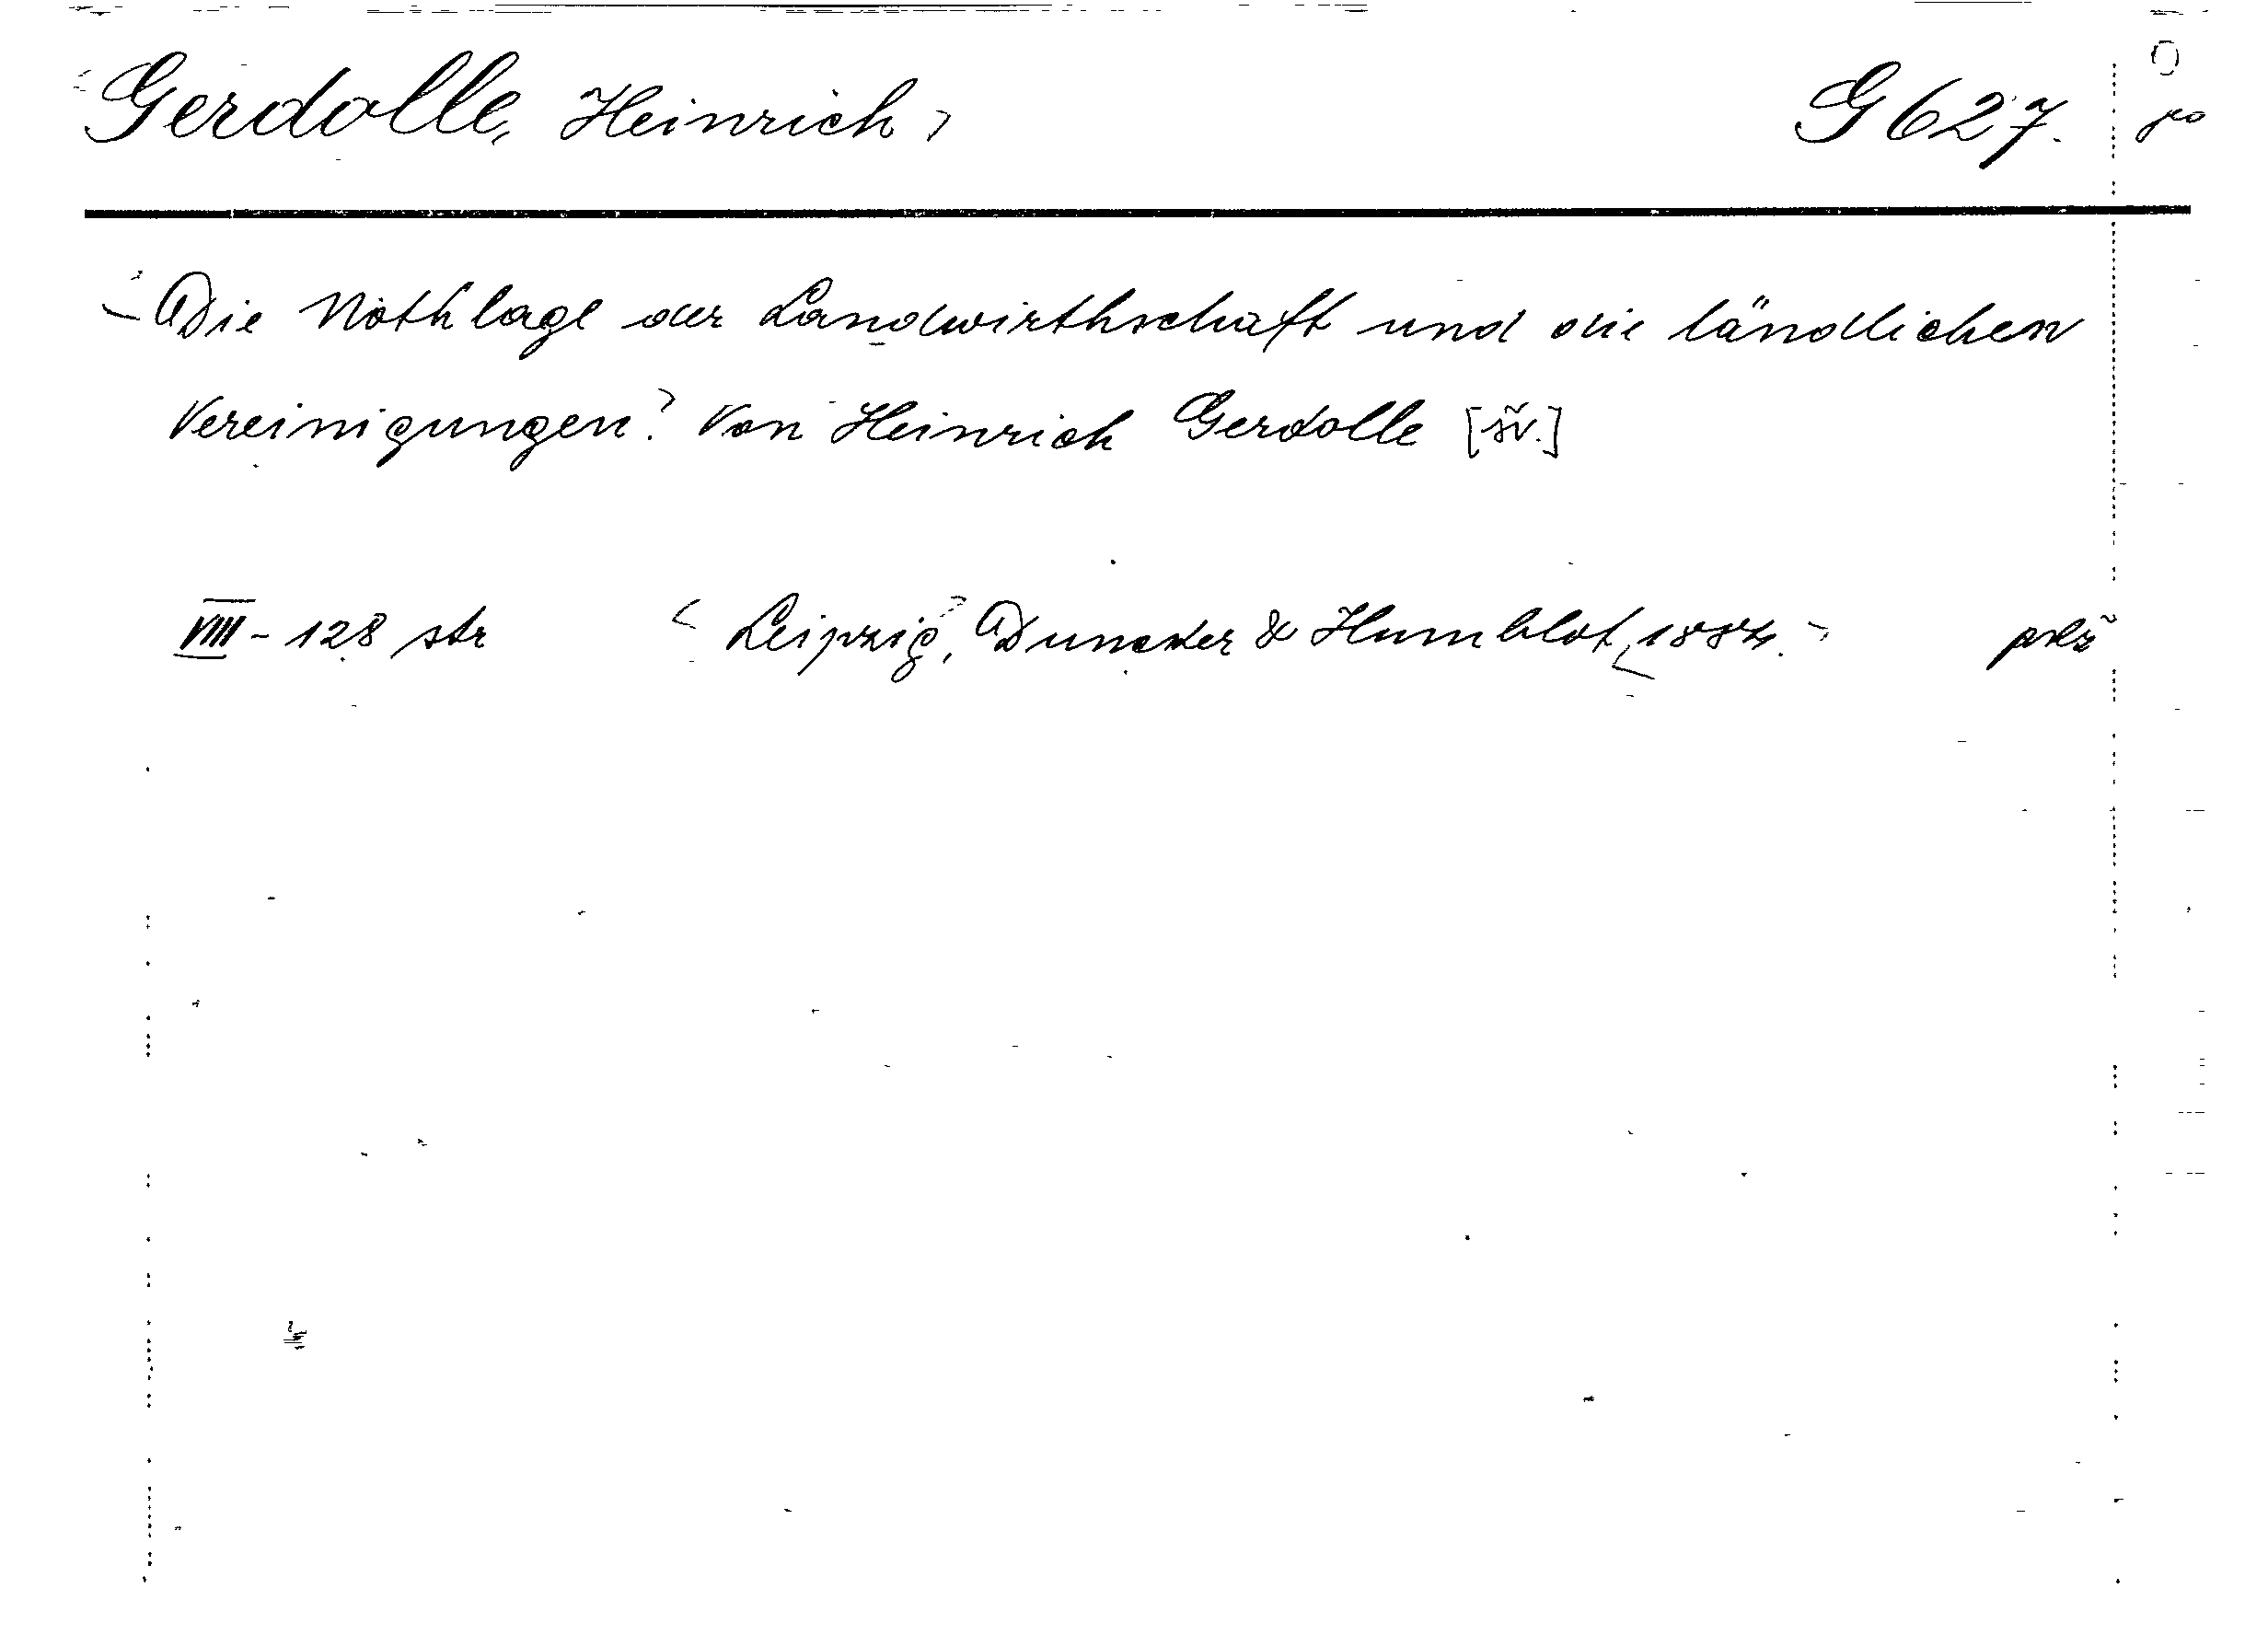 Gerdolle, Heinrich, G 627.
Die Nothlage der Landwirthschaft und die ländlichen
Vereinigungen. Von Heinrich Gerdolle [sv.]
VIII - 128 str Leipzig, Duncker & Humblot, 1884.